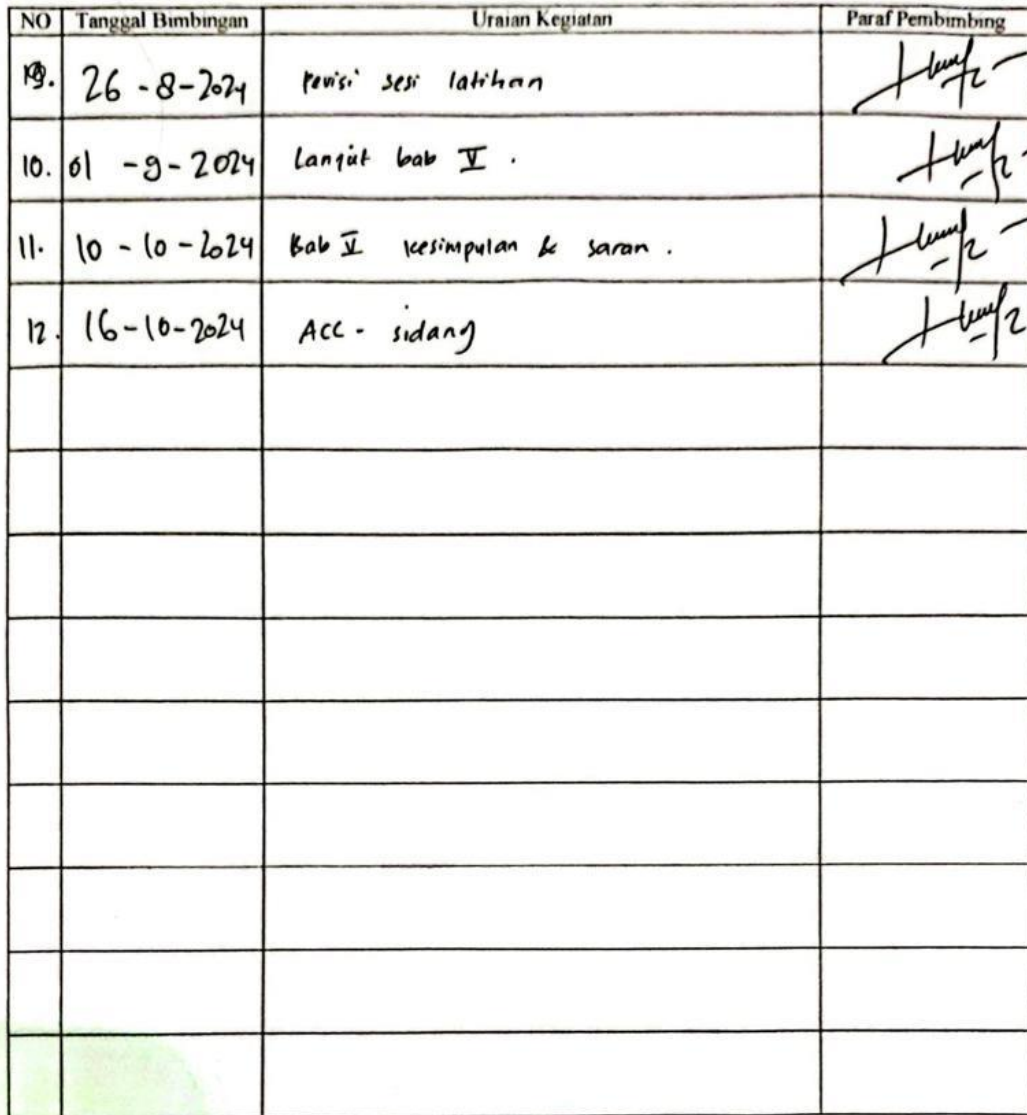 NO Tanggal Bimbingan Uraian Kegiatan Paraf Pembimbing
9. 26 - 8 - 2024 Revisi sesi latihan
10. 01 - 9 - 2024 Lanjut bab V .
11. 10 - 10 - 2024 Bab V kesimpulan & saran .
12. 16 - 10 - 2024 ACC - sidang